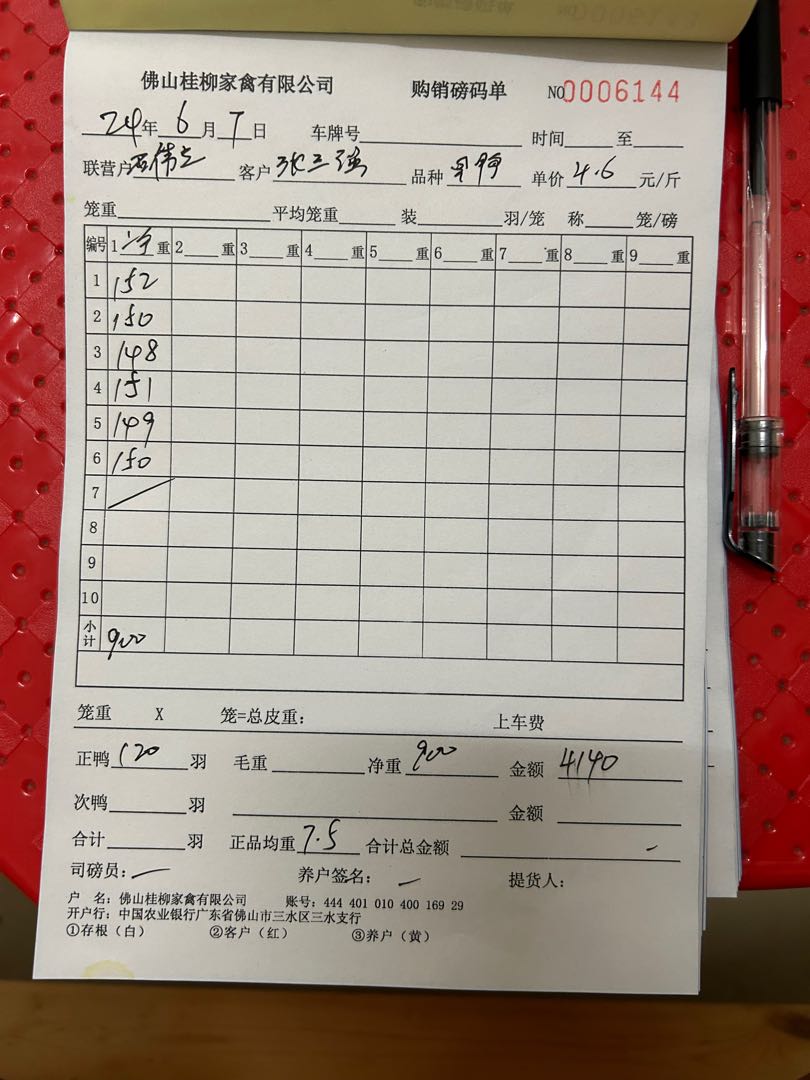 佛山桂柳家禽有限公司 购销磅码单 NO0006144
24年6月7日 车牌号 时间 至
联营户 伟 客户 张三强 品种 单价 4.6 元/斤
笼重 平均笼重 装 羽/笼 称 笼/磅
编号 1 净 重 2 重 3 重 4 重 5 重 6 重 7 重 8 重 9 重
1 152
2 150
3 148
4 151
5 149
6 150
7
8
9
10
小计 900
笼重 X 笼=总皮重: 上车费
正鸭 120 羽 毛重 净重 900 金额 4140
次鸭 羽 金额
合计 羽 正品均重 7.5 合计总金额
司磅员: 养户签名: 提货人:
户 名: 佛山桂柳家禽有限公司 账号: 444 401 010 400 169 29
开户行: 中国农业银行广东省佛山市三水区三水支行
①存根(白) ②客户(红) ③养户(黄)